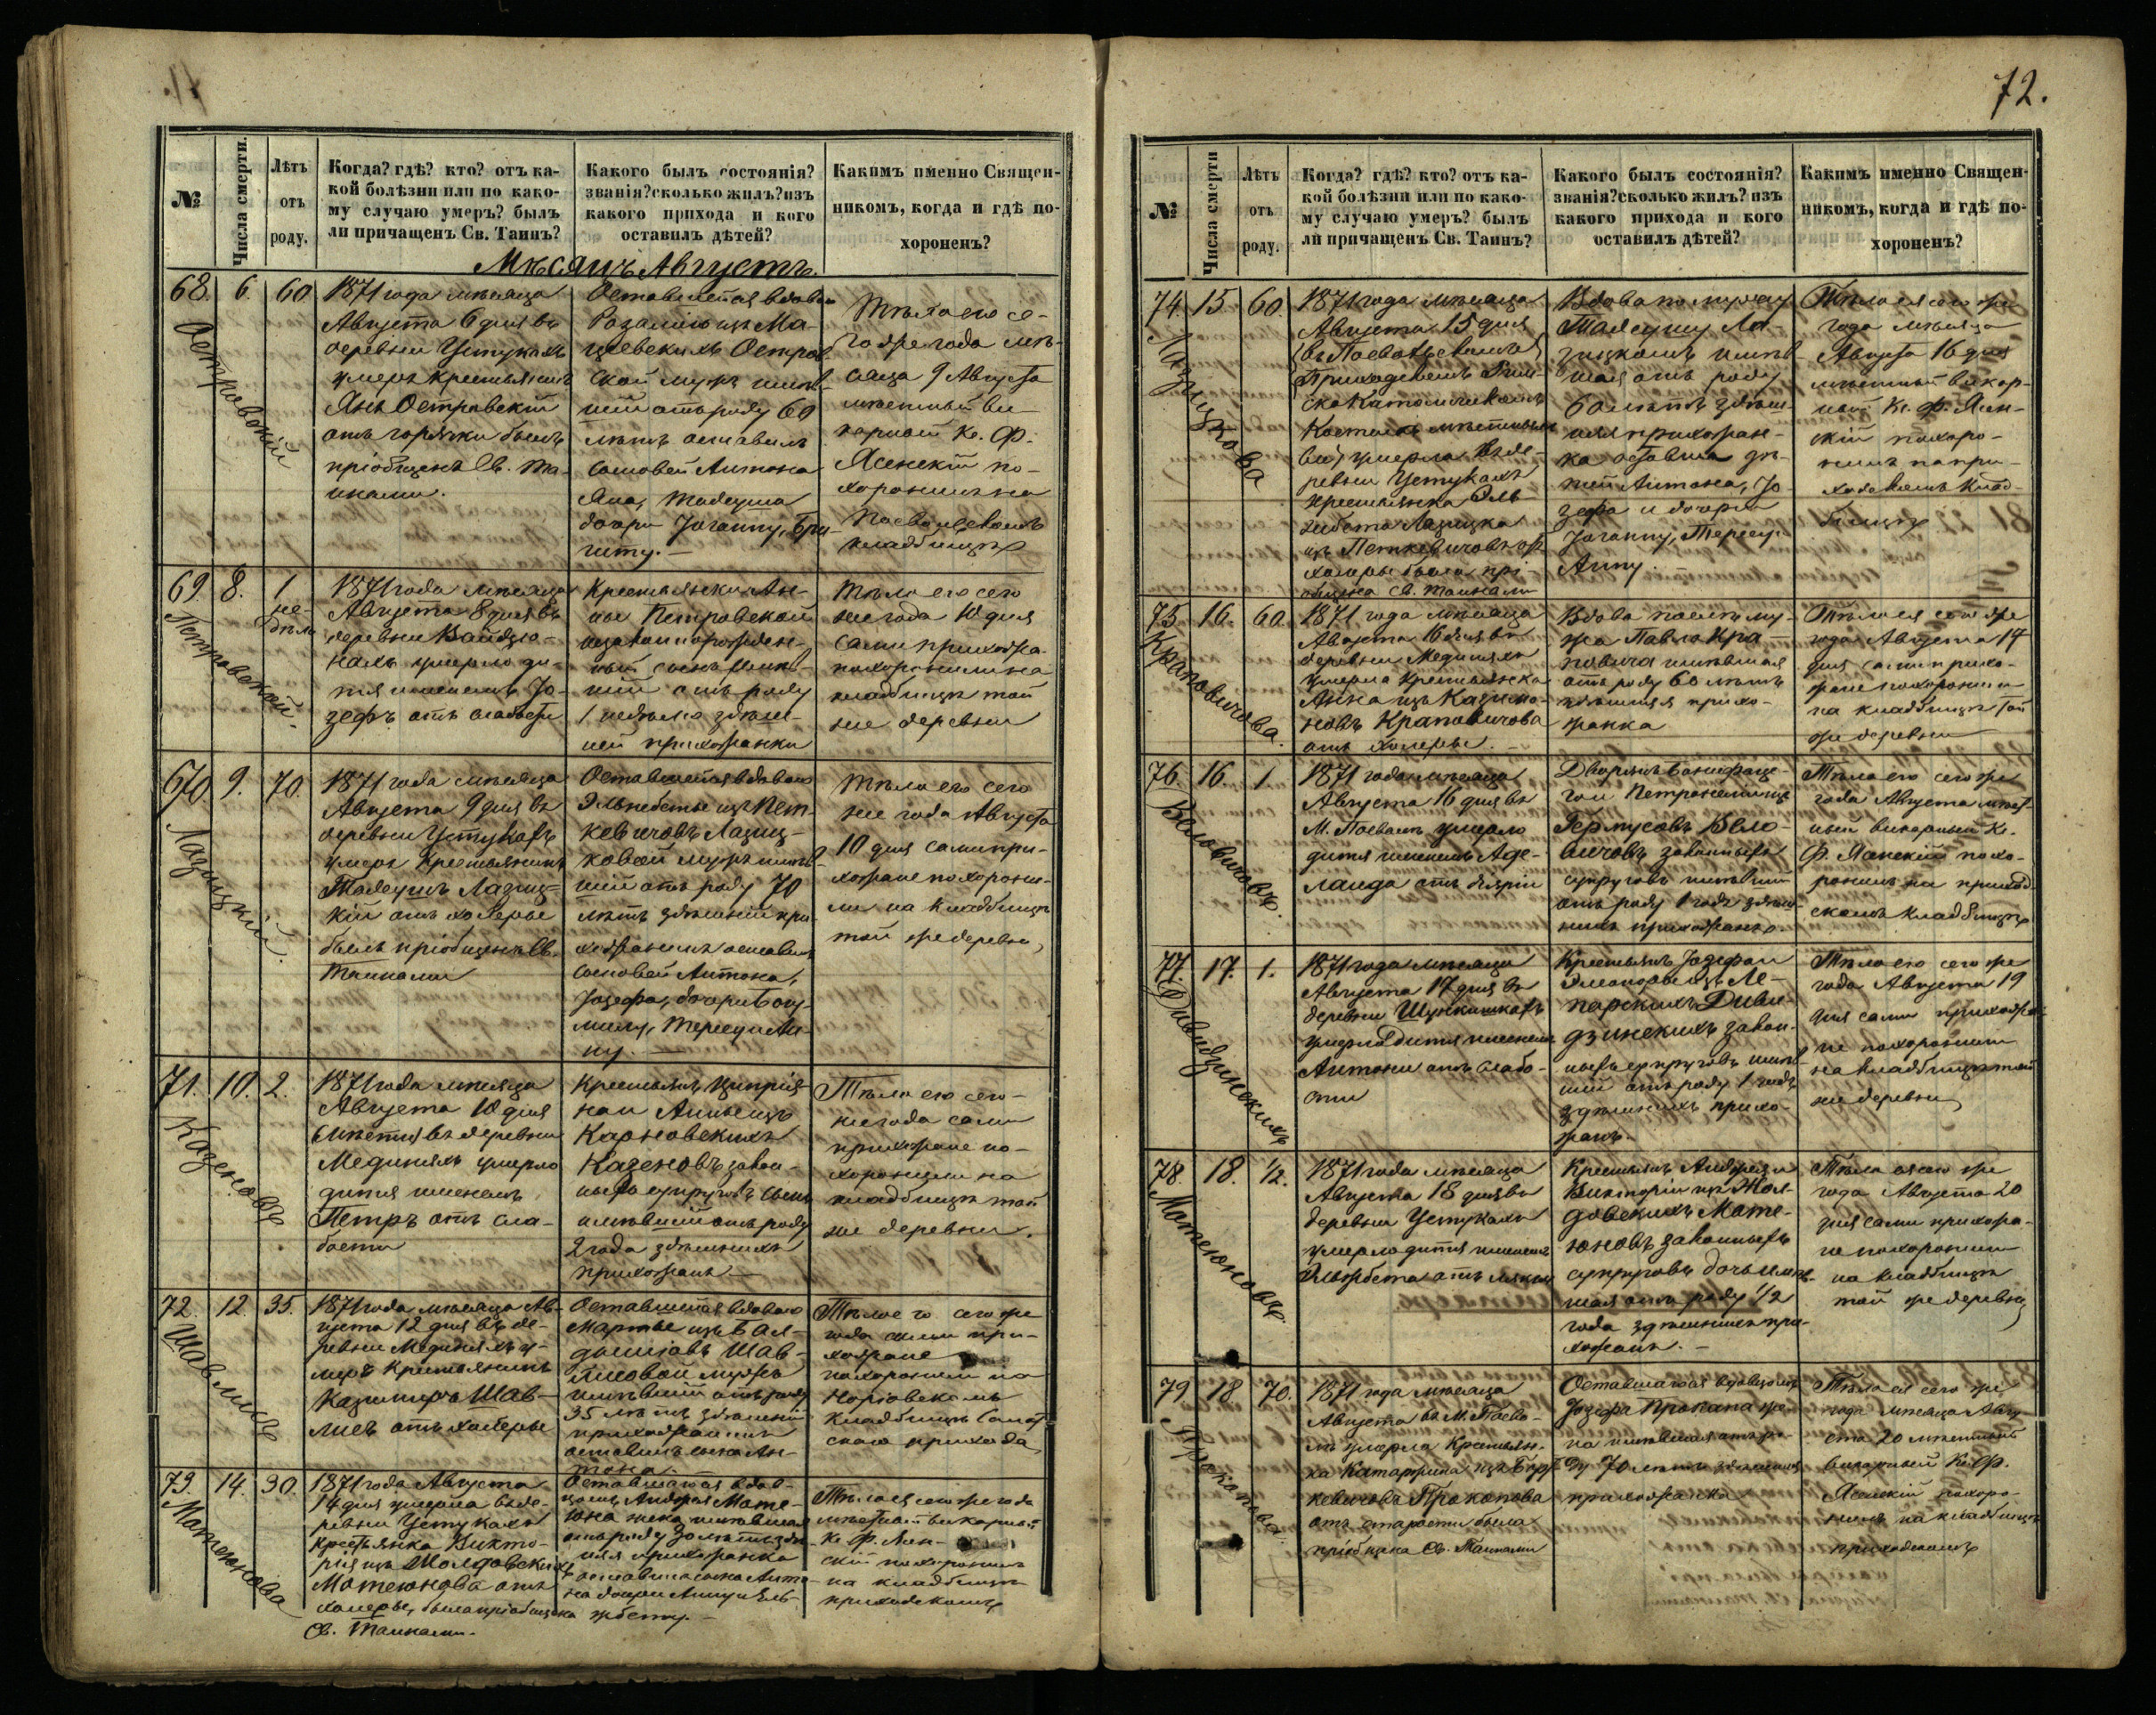 72.
№
Числа смерти.
Лѣтъ
отъ
роду.
Когда? гдѣ? кто? отъ ка-
кой болѣзни или по како-
му случаю умеръ? былъ
ли причащенъ Св. Таинъ?
Какого былъ состоянія?
званія? сколько жилъ? изъ
какого прихода и кого
оставилъ дѣтей?
Какимъ именно Священ-
никомъ, когда и гдѣ по-
хороненъ?
Мѣсяцъ Августъ.
68. 6. 60.
Островскій
1871 года мѣсяца
Августа 6 дня въ
деревни Устукахъ
умеръ крестьянинъ
Янъ Островскій
отъ горячки былъ
пріобщенъ Св. Та-
инами.
Розалію изъ Ма-
скай мужъ имѣв-
шій отъ роду 60
лѣтъ оставилъ
сыновей Антона
Яна, Тадеуша
дочери Іоганну, Бри-
гиту.
Тѣло его се-
го же года мѣ-
сяца 9 Августа
мѣстный ви-
карный Кс. Ф.
Ясенскій по-
хоронилъ на
Посвольскомъ
кладбищѣ
69. 8. 1
не-
дѣля
Петровской.
1871 года мѣсяца
Августа 8 дня въ
нахъ умерло ди-
тя именемъ Іо-
зефъ отъ слабости
Крестьянки Ан-
ны Петровской
незаконнорожден-
ный сынъ имѣв-
шій отъ роду
1 недѣлю здѣш-
ней прихожанки
Тѣло его сего
же года 10 дня
сами прихожа-
похоронили на
кладбищѣ той
же деревни
670 9. 70.
Лазицкій.
1871 года мѣсяца
Августа 9 дня въ
деревни Устукахъ
умеръ крестьянинъ
Тадеушъ Лазиц-
кій отъ холеры
былъ пріобщенъ Св.
Таинами
Эльжбетые изъ Пет-
кевичовъ Лазиц-
ковой мужъ имѣв-
шій отъ роду 70
лѣтъ здѣшній при-
хожанинъ оставилъ
сыновей Антона,
Іозефа, дочери Богу-
милу, Терезу и Ан-
ну.
Тѣло его сего
же года Августа
10 дня сами при-
хожане похорони-
ли на кладбищѣ
той же деревни
71. 10. 2.
Казеновъ
1871 года мѣсяца
Августа 10 дня
въ деревни
Мединяхъ умерло
дитя именемъ
Петръ отъ сла-
бости
Крестьянъ Кипрія-
на и Анны изъ
Карновскихъ
Казеновъ закон-
ныхъ супруговъ сынъ
имѣвшій отъ роду
2 года здѣшнихъ
прихожанъ
Тѣло его сего-
же года сами
прихожане по-
хоронили на
кладбищѣ той
же деревни.
72. 12. 35.
Шавлисъ
1871 года мѣсяца Ав-
густа 12 дня въ де-
ревни Мединяхъ у-
меръ крестьянинъ
Казимеръ Шав-
лисъ отъ холеры
Мартые изъ Бал-
лисовой мужъ
имѣвшій отъ роду
35 лѣтъ здѣшній
прихожанинъ
оставилъ сына Ан-
тона.
Тѣло его сего же
года сами при-
хожане
похоронили на
кладбищѣ
скаго прихода
73. 14. 30.
Матеюнова
1871 года Августа
14 дня умерла въ де-
ревни Устукахъ
крестьянка Викто-
рія изъ Жолдовскихъ
Матеюнова отъ
холеры, была пріобщена
Св. Таинами.
цомъ Андрея Мате-
юна жена имѣвшая
отъ роду 30 лѣтъ здѣш-
няя прихожанка
оставила сына Анто-
на дочери Анну и Эль-
жбету.
Тѣло ея сего же года
мѣстный викарный
Кс. Ф. Ясен-
скій похоронилъ
на кладбищѣ
приходскомъ
№
Числа смерти
Лѣтъ
отъ
роду.
Когда? гдѣ? кто? отъ ка-
кой болѣзни или по како-
му случаю умеръ? былъ
ли причащенъ Св. Таинъ?
Какого былъ состоянія?
званія? сколько жилъ? изъ
какого прихода и кого
оставилъ дѣтей?
Какимъ именно Священ-
никомъ, когда и гдѣ по-
хороненъ?
74. 15 60.
Лазицкова
1871 года мѣсяца
Августа 15 дня
Приходскомъ Рим-
ско Католическомъ
Костелѣ
умерла въ де-
ревни Устукахъ
крестьянка Эль-
жбета Лазицка
изъ Петкевичовъ отъ
холеры была прі-
общена Св. Таинами
Вдова по мужу
Тадеушу Ла-
зицкомъ имѣв-
шая отъ роду
60 лѣтъ здѣш-
няя прихожан-
ка оставила дѣ-
тей Антона, Іо-
зефа и дочери
Іоганну, Терезу
Анну.
Тѣло ея сего же
года мѣсяца
Августа 16 дня
мѣстный викар-
ный Кс. Ф. Ясен-
скій похоро-
нилъ на при-
ходскомъ клад-
бищѣ
75. 16. 60.
Краповичова.
1871 года мѣсяца
Августа 16 дня въ
деревни Мединяхъ
умерла крестьянка
Анна изъ Казено-
новъ Краповичова
отъ холеры.
Вдова послѣ му-
жа Павла Кра-
повича имѣвшая
отъ роду 60 лѣтъ
здѣшняя прихо-
жанка
Тѣло ея сего же
года Августа 17
дня сами прихо-
жане похоронили
на кладбищѣ той
же деревни
76. 16. 1.
1871 года мѣсяца
Августа 16 дня въ
М. Посволѣ умерло
дитя именемъ Аде-
лаида отъ діаріи
Дворянъ Бонифаце-
го и Петронели изъ
законныхъ
супруговъ имѣвшій
отъ роду 1 годъ здѣш-
нихъ прихожанъ.
Тѣло его сего же
года Августа мѣст-
ный викарный Кс.
Ф. Ясенскій похо-
ронилъ на приход-
скомъ кладбищѣ
77. 17. 1.
Дивидзинскихъ
1871 года мѣсяца
Августа 17 дня въ
деревни Шункишкахъ
умерло дитя именемъ
Антони отъ слабо-
сти
Крестьянъ Іозефа и
Элеоноры изъ Ле-
парскихъ Диви-
дзинскихъ закон-
ныхъ супруговъ имѣв-
шій отъ роду 1 годъ
здѣшнихъ прихо-
жанъ.
Тѣло его сего же
года Августа 19
дня сами прихожа-
не похоронили
на кладбищѣ той
же деревни
78. 18. 1/2.
Матеюновъ.
1871 года мѣсяца
Августа 18 дня въ
деревни Устукахъ
умерло дитя именемъ
Эльжбета отъ
Крестьянъ Андрея и
Викторіи изъ Жол-
довскихъ Мате-
юновъ законныхъ
супруговъ дочь имѣв-
шая отъ роду 1/2
года здѣшнихъ при-
хожанъ.
Тѣло ея сего же
года Августа 20
дня сами прихожа-
не похоронили
на кладбищѣ
той же деревни
79 18 70.
Прокопова.
1871 года мѣсяца
Августа въ М. Посво-
лѣ умерла крестьян-
ка Катаржина изъ
кевичова Прокопова
отъ старости была
пріобщена Св. Таинами
Оставшагося вдовцомъ
Іозефа Прокопа же-
на имѣвшая отъ ро-
ду 70 лѣтъ здѣшняя
прихожанка
Тѣло ея сего же
года мѣсяца Авгу-
ста 20 мѣстный
викарный Кс. Ф.
Ясенскій похоро-
нилъ на кладбищѣ
приходскомъ